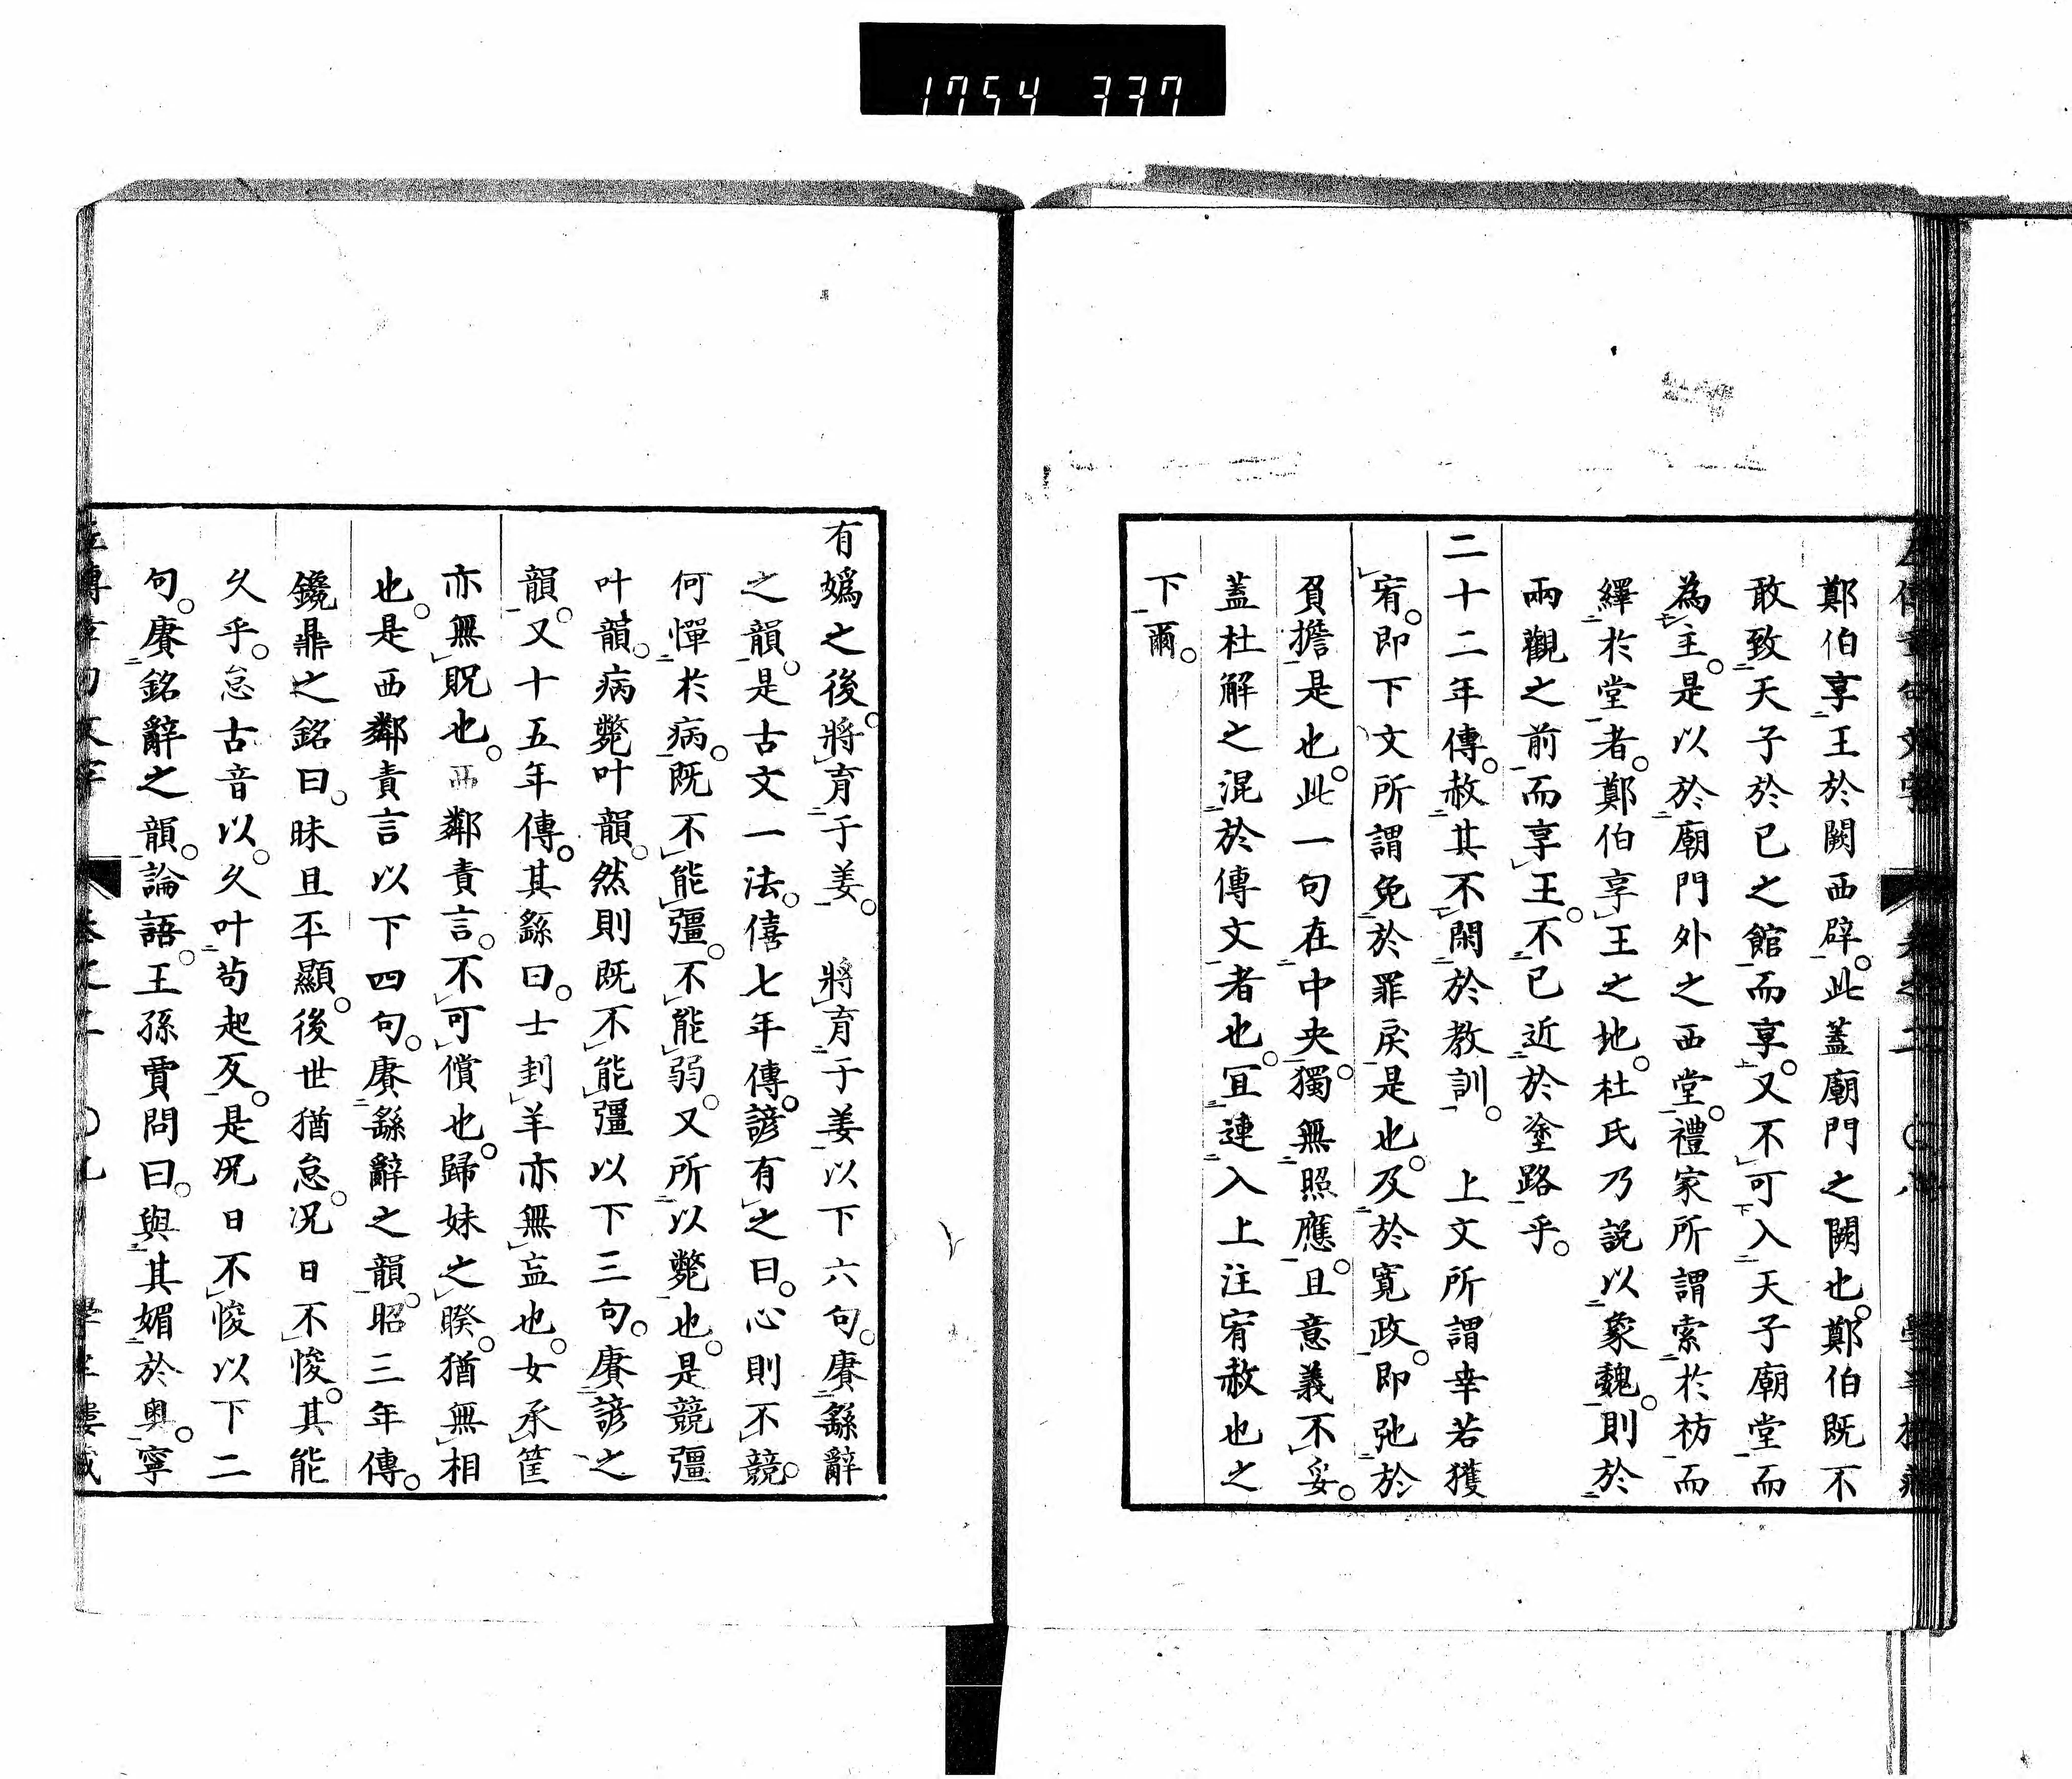 1754 337
鄭伯享王於闕西辟。此蓋廟門之闕也。鄭伯既不
敢致天子於己之館而享。又不可入天子廟堂而
為主。是以於廟門外之西堂。禮家所謂索於祊而
繹於堂者。鄭伯享王之地。杜氏乃説以象魏。則於
兩觀之前而享王。不已近於塗路乎。
二十二年傳。赦其不閑於教訓。 上文所謂幸若獲
宥。即下文所謂免於罪戻是也。及於寛政。即弛於
負擔是也。此一句在中央。獨無照應。且意義不妥。
蓋杜解之混於傳文者也。宜連入上注宥赦也之
下爾。
有嬀之後。將育于姜。 將育于姜以下六句。賡繇辭
之韻。是古文一法。僖七年傳。諺有之曰。心則不競。
何憚於病。既不能彊。不能弱。又所以斃也。是競彊
叶韻。病斃叶韻。然則既不能彊以下三句。賡諺之
韻。又十五年傳。其繇曰。士刲羊亦無衁也。女承筐
亦無貺也。西鄰責言。不可償也。歸妹之睽。猶無相
也。是西鄰責言以下四句。賡繇辭之韻。昭三年傳。
鑱鼎之銘曰。昧旦丕顯。後世猶怠。况日不悛。其能
久乎。怠古音以。久叶苟起反。是况日不悛以下二
句。賡銘辭之韻。論語。王孫賈問曰。與其媚於奧。寧